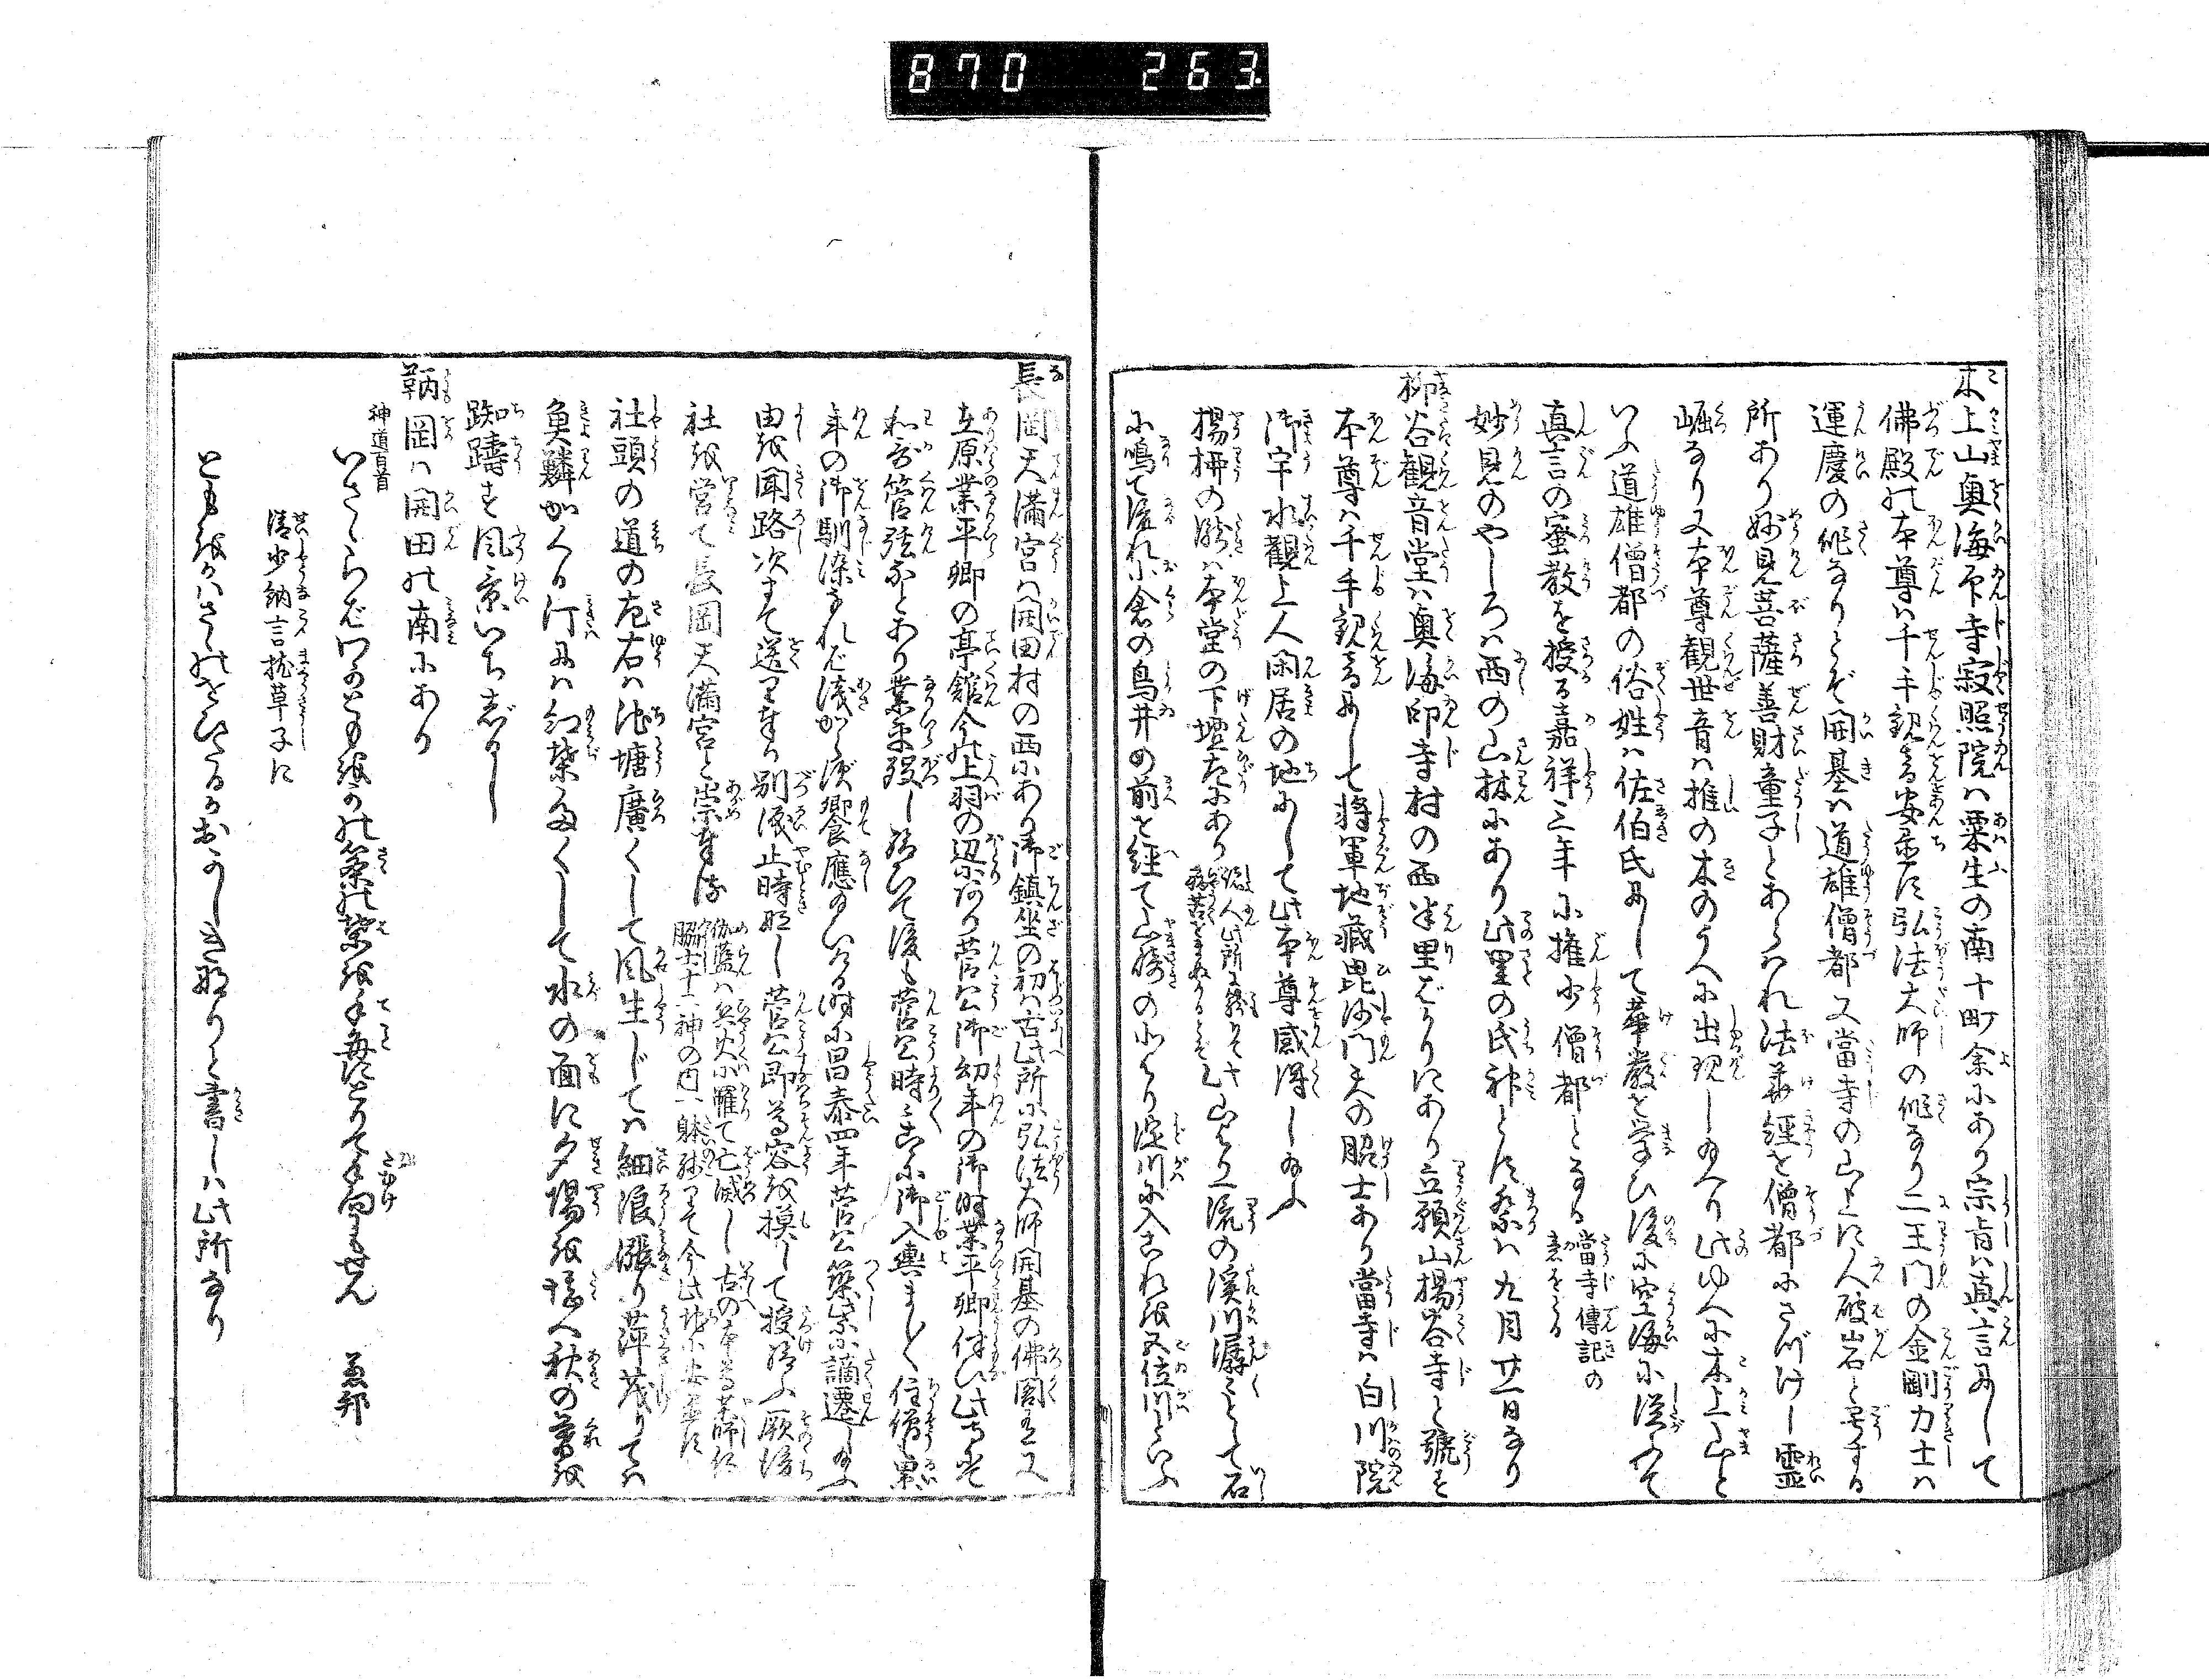 870 263
木上山奥海印寺寂照院は粟生の南十町余にあり宗旨は真言にして
佛殿の本尊は千手観音安置す弘法大師の作なり二王門の金剛力士は
運慶の作なりとぞ開基は道雄僧都又當寺の山上に人破岩と号する
所あり妙見菩薩善財童子とあらはれ法華經を僧都にさづけし霊
崛なり又本尊観世音は推の木のうへに出現し給へり此ゆへに木上山と
いふ道雄僧都の俗姓は佐伯氏にして華嚴を学び後に空海に従ふて
真言の蜜教を授る嘉祥三年に権少僧都となる
當寺傳記の
意をとる
妙見のやしろは西の山林にあり此里の氏神とす祭は九月廿一日なり
柳谷観音堂は奥海印寺村の西半里ばかりにあり立願山揚谷寺と號す
本尊は千手観音にして将軍地蔵毘沙門天の脇士あり當寺は白川院
御宇永観上人閑居の地にして此本尊感得し給ふ
揚柳の
は本堂の下壇左にあり
山より流の溪川潺々として石
に鳴て流れ小倉の鳥井の前を經て山崎の北より淀川に入これを五位川といふ
長岡天満宮は開田村の西にあり御鎮坐の初は古此所に弘法大師開基の佛閣あり又
在原業平卿の亭舘今の上羽の辺にあり菅公御幼年の御時業平卿伴ひ此寺にて
和歌管弦などあり業平歿し給ひて後も菅公時々こゝに御入輿まし〳〵住僧も累
年の御馴染なれば浅からず饗應ありける時に昌泰四年菅公築紫に謫遷し給ふ
由を聞路次まで送り奉り別涙止時なし菅公即尊容を摸して授給ふ厥後
社を営て長岡天満宮と崇奉る
伽藍は兵火に罹て亡滅し古の本尊薬師仏
脇士十二神の内一躰残りて今此社に安置す
社頭の道の左右は池塘廣くして風生じては細浪漲り萍茂りては
魚鱗かくる汀には紅葉多くして水の面に夕陽を揉へ秋の暮を
踟蹰す風景いちじるし
鞆岡は開田の南にあり
神道百首
いさゝらばわがとも岡の篠の葉を手每にとりて手向もせん
兼邦
清少納言枕草子に
とも岡はさゝのおひたるがおかしきなりと書しは此所なり